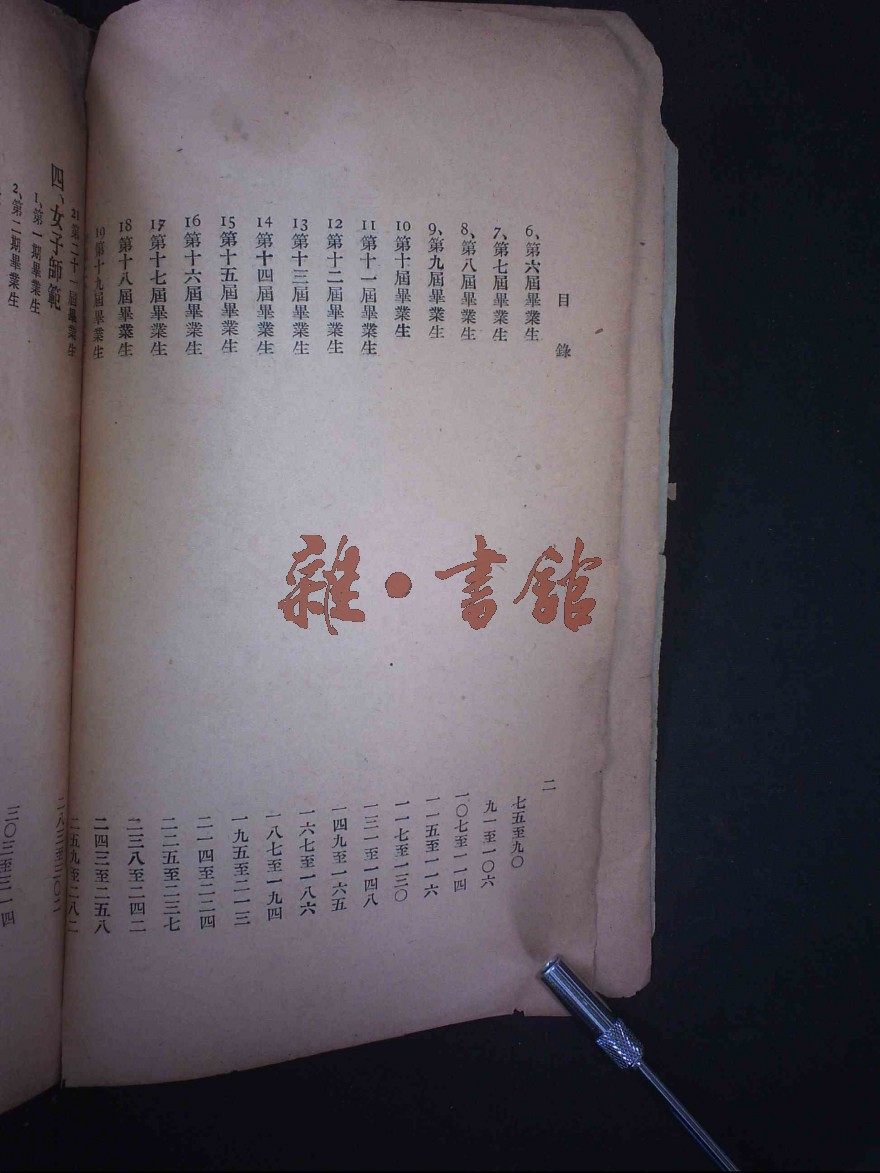 目錄 二
6、第六屆畢業生 七五至九〇
7、第七屆畢業生 九一至一〇六
8、第八屆畢業生 一〇七至一一四
9、第九屆畢業生 一一五至一一六
10第十屆畢業生 一一七至一三〇
11第十一屆畢業生 一三一至一四八
12第十二屆畢業生 一四九至一六五
13第十三屆畢業生 一六七至一八六
14第十四屆畢業生 一八七至一九四
15第十五屆畢業生 一九五至二一三
16第十六屆畢業生 二一四至二二四
17第十七屆畢業生 二二五至二三七
18第十八屆畢業生 二三八至二四二
19第十九屆畢業生 二四三至二五八
二五九至二八二
21第二十一屆畢業生 二八三至三〇二
四、女子師範
1、第一期畢業生 三〇三至三一四
2、第二期畢業生
雜·書館